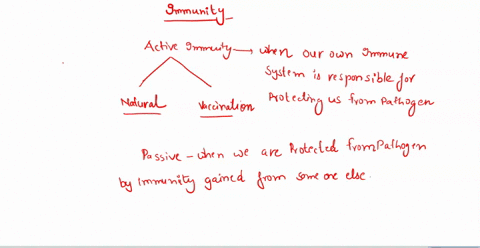 Immunity
Active Immuity → when our own Immune
System is responsible for
Natural Vaccination Protecting us from Pathogen
Passive - when we are Protected from Pathogen
by Immunity gained from some one else.